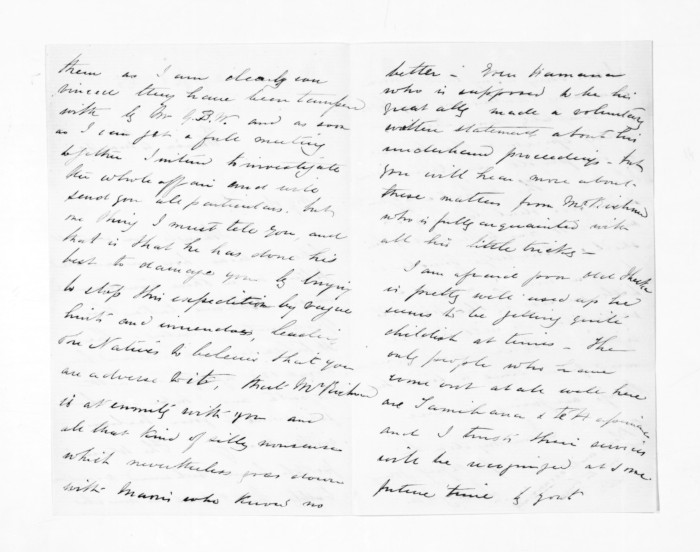 them as I am clearly con
vinced they have been tamperd
with by Mr G.B.W. and as soon
as I can get a full meeting
together I intend to investigate
the whole affair and will
send you all particulars. but
one thing I must tell you, and
that is that he has done his
best to damage you by trying
to stop this expedition by vague
hints and innendos, leading
the Natives to believe that you
are adverse to it, that Mr
is at enmity with you and
all that kind of silly nonsense
which nevertheless goes down
with Maoris who know no
better - Even Hamana
who is supposed to be his
great ally made a voluntary
written statement about his
underhand proceedings - but
you will hear more about
these matters from Mr
who is fully acquainted with
all his little tricks -
I am afraid poor old
is pretty well used up he
seems to be getting quite
childish at times - The
only people who have
come out at all well here
are Tamihana & te
and I trust their services
will be recognized at some
future time by Govt